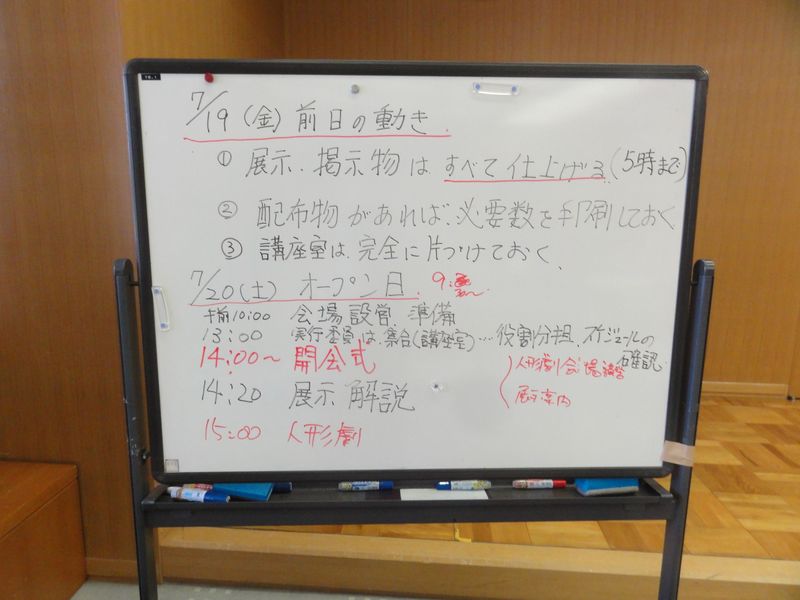 7/19(金)前日の動き.
① 展示.掲示物は すべて仕上げる(5時まで)
② 配布物があれば、必要数を印刷しておく
③ 講座室は、完全に片づけておく、
7/20(土) オープン日. 9:
午前10:00 会場設営、準備
13:00 実行委員は、集合(講座室)…役割分担、スケジュールの確認
14:00~ 開会式
人形劇会場設営
14:20 展示解説
展示案内
15:00 人形劇